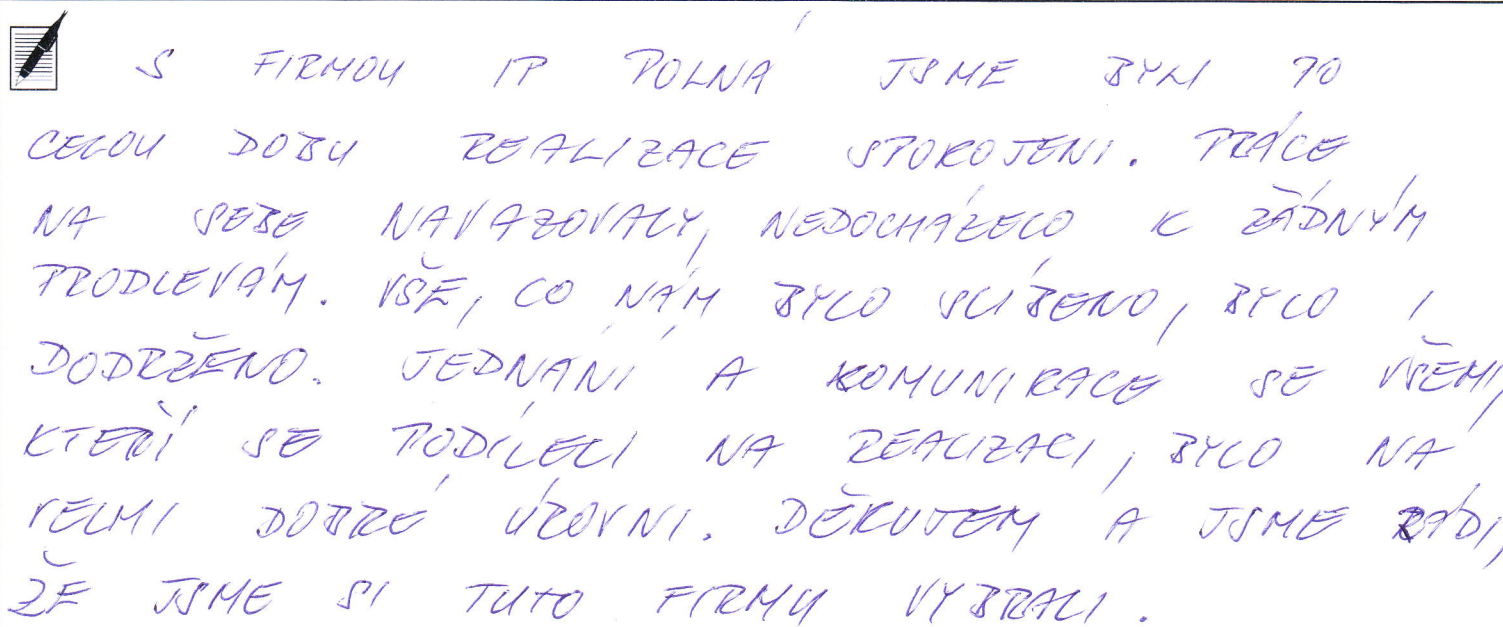 S FIRMOU IP POLNÁ JSME BYLI PO
CELOU DOBU REALIZACE SPOKOJENI. PRÁCE
NA SEBE NAVAZOVALY, NEDOCHÁZELO K ŽÁDNÝM
PRODLEVÁM. VŠE, CO NÁM BYLO SLÍBENO, BYLO I
DODRŽENO. JEDNÁNÍ A KOMUNIKACE SE VŠEMI,
KTEŘÍ SE PODÍLELI NA REALIZACI, BYLO NA
VELMI DOBRÉ ÚROVNI. DĚKUJEM A JSME RÁDI,
ŽE JSME SI TUTO FIRMU VYBRALI.